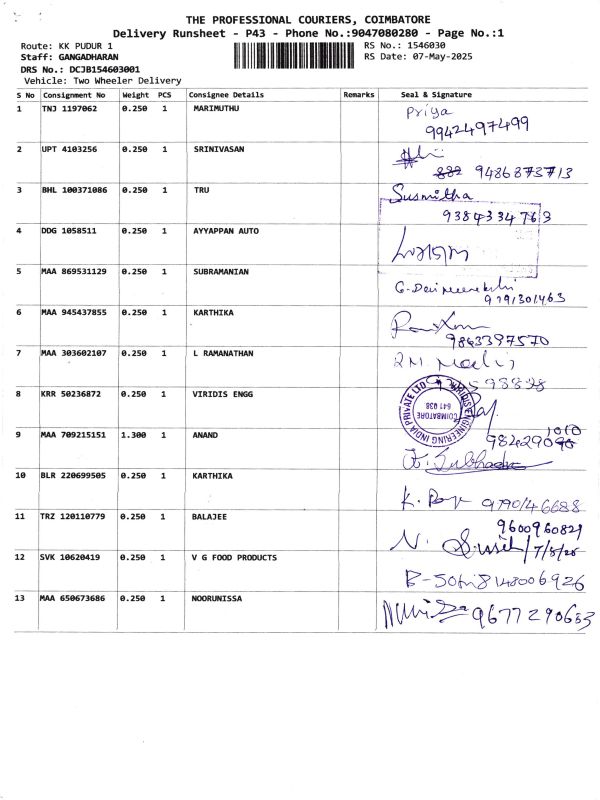 THE PROFESSIONAL COURIERS, COIMBATORE
Delivery Runsheet - P43 - Phone No.:9047080280 - Page No.:1
Route: KK PUDUR 1 RS No.: 1546030
Staff: GANGADHARAN RS Date: 07-May-2025
DRS No.: DCJB154603001
Vehicle: Two Wheeler Delivery
S No Consignment No Weight PCS Consignee Details Remarks Seal & Signature
1 TNJ 1197062 0.250 1 MARIMUTHU Priya
9942497499
2 UPT 4103256 0.250 1 SRINIVASAN
9486873713
3 BHL 100371086 0.250 1 TRU Susmitha
9384334763
4 DDG 1058511 0.250 1 AYYAPPAN AUTO
5 MAA 869531129 0.250 1 SUBRAMANIAN
9791301463
6 MAA 945437855 0.250 1 KARTHIKA
9843397570
7 MAA 303602107 0.250 1 L RAMANATHAN
8 KRR 50236872 0.250 1 VIRIDIS ENGG
VIRIDIS ENGINEERING INDIA PRIVATE LTD
COIMBATORE
641 038
9 MAA 709215151 1.300 1 ANAND
10 BLR 220699505 0.250 1 KARTHIKA
9790146688
11 TRZ 120110779 0.250 1 BALAJEE 9600960829
12 SVK 10620419 0.250 1 V G FOOD PRODUCTS
8148006926
13 MAA 650673686 0.250 1 NOORUNISSA
9677290653